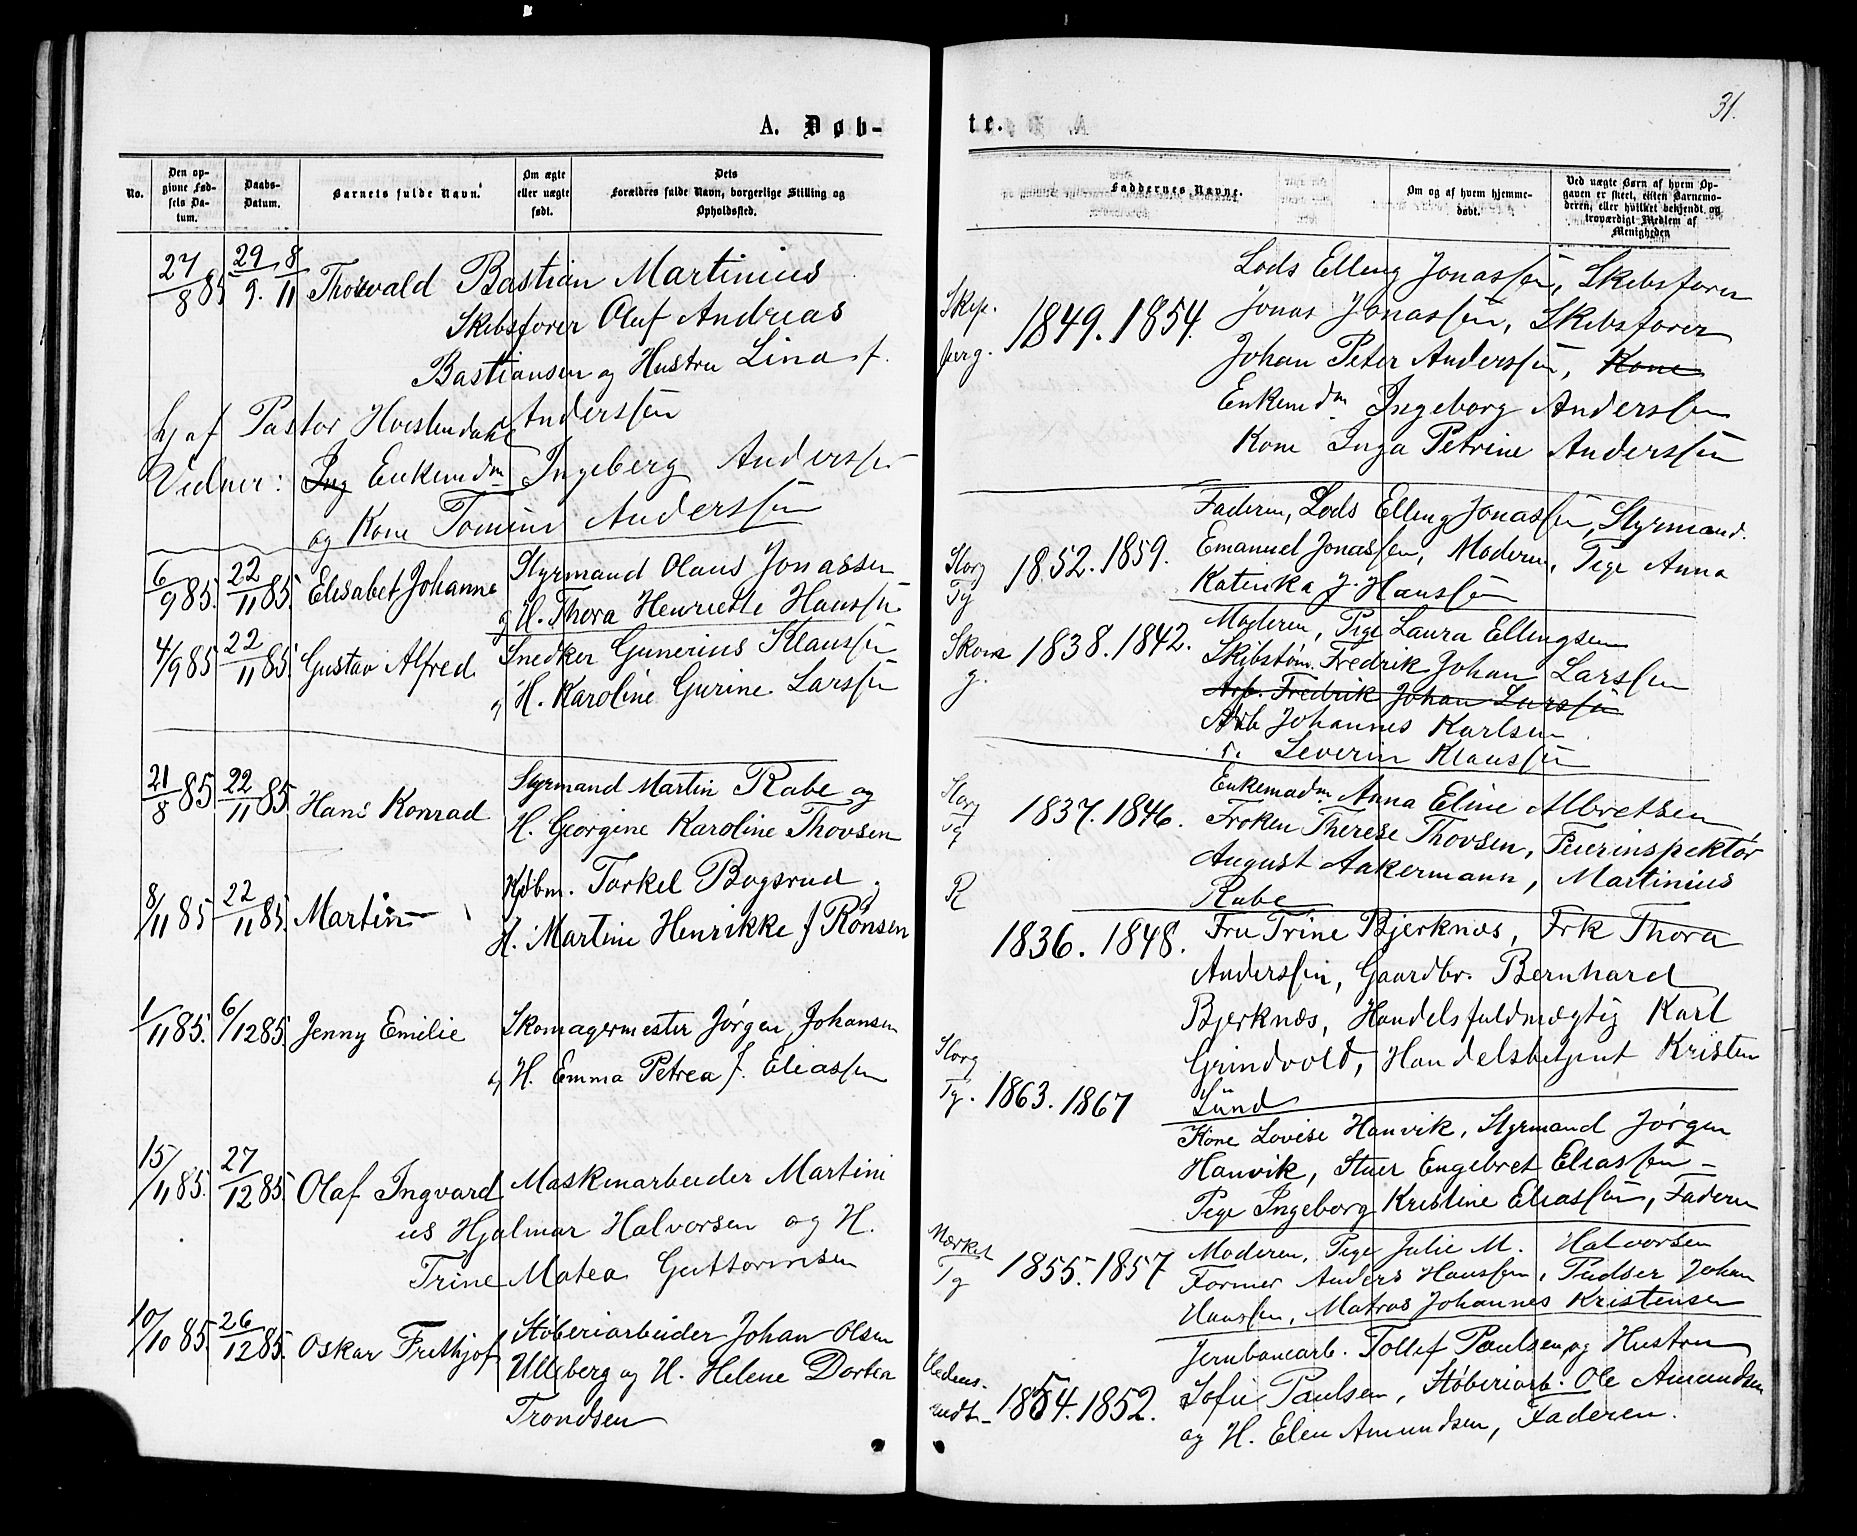 A. Døb-
No.
Den op-
givne Fød-
sels Da-
tum.
Daabs-
Datum.
Barnets fulde Navn.
Om ægte
eller uægte
født.
Dets
Forældres fulde Navn, borgerlige Stilling og
Opholdssted.
27/8 85 29/9. 8/11 Thorvald Bastian Martinius
Skibsfører Oluf Andreas
Bastiansen og Hustru Lina f.
Anderssen
hj af Pastor
Vidner: Ing Enkemdm Ingeberg Anderssen
og Kone Anderssen
6/9 85. 22/11 85. Elisabet Johanne Styrmand Olaus Jonassen
og H. Thora Henriette Hanssen
4/9 85 22/11 85. Gustav Alfred Snedker Gunerius Klaussen
og H. Karoline Gurine Larssen
21/8 85 22/11 85. Hans Konrad Styrmand Martin Rabe og
H. Georgine Karoline Thovsen
8/11 85 22/11 85. Martin Kjøbm. Torkel Bogsrud og
H. Martine Henrikke f Rønsen
1/11 85. 6/12 85. Jenny Emilie Skomagermester Jørgen Johansen
og H. Emma Petrea f. Eliassen
15/11 85. 27/12 85. Olaf Ingvard Maskinarbeider Martini
us Hjalmar Halvorsen og H.
Trine Matea Guttormsen
10/10 85. 26/12 85. Oskar Frithjof Støberiarbeider Johan Olsen
Ulleberg og H. Helene Dortea
Trondsen
31.
te.
Faddernes Navne.
Om og af hvem hjemme-
døbt.
Ved uægte Børn af hvem Op-
gaven er skeet, enten Barnemo-
deren, eller hvilket bekjendt og
troværdigt Medlem af
Menigheden
Lods Elling Jonassen, Skibsfører
1849. 1854. Jonas Jonassen, Skibsfører
Johan Peter Anderssen, Kone
Enkemdm Ingeborg Anderssen
Kone Inga Petrine Anderssen
Faderen, Lods Elling Jonassen, Styrmand.
Storg
Tg 1852. 1859. Emanuel Jonassen, Moderen, Pige Anna
Katinka J. Hanssen
1838. 1842. Moderen, Pige Laura Ellingsen
Skibstøm. Fredrik Johan Larssen
Arb. Fredrik Johan Larssen
Arb Johannes Karlsen
Severin Klaussen
Storg
Tg 1837. 1846. Enkemadm Anna Eline Albretsen
Frøken Therese Thovsen, Feierinspektør
August Aakermann, Martinius
R Rabe
1836. 1848. Fru Trine Bjerknæs, Frk Thora
Anderssen, Gaardbr. Bernhard
Bjerknæs, Handelsfuldmægtig Karl
Grindvold, Handelsbetjent Kristen
Lund
Storg
Tg. 1863. 1867 Kone Lovise Hanvik, Styrmand Jørgen
Hanvik, Stuer Engebret Eliassen
Pige Ingeborg Kristine Eliassen, Faderen
Mærket
Tg 1855. 1857 Moderen, Pige Julie M. Halvorsen
Former Anders Hanssen, Pudser Johan
Hanssen, Matros Johannes Kristensen
1854. 1852. Jernbanearb. Tollef Paulsen og Hustru
Sofie Paulsen, Støberiarb. Ole Amundsen
og H. Elen Amundsen, Faderen.